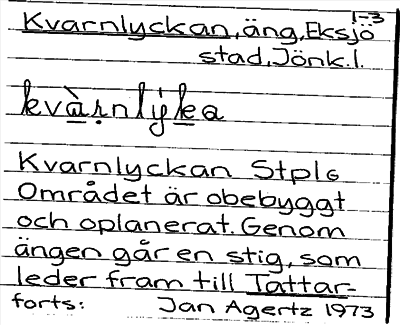 1-3
Kvarnlyckan, äng, Eksjö
stad, Jönk.l.
kvàṛnlýka
Kvarnlyckan Stpl6
Området är obebyggt
och oplanerat. Genom
ängen går en stig, som
leder fram till Tattar-
forts: Jan Agertz 1973